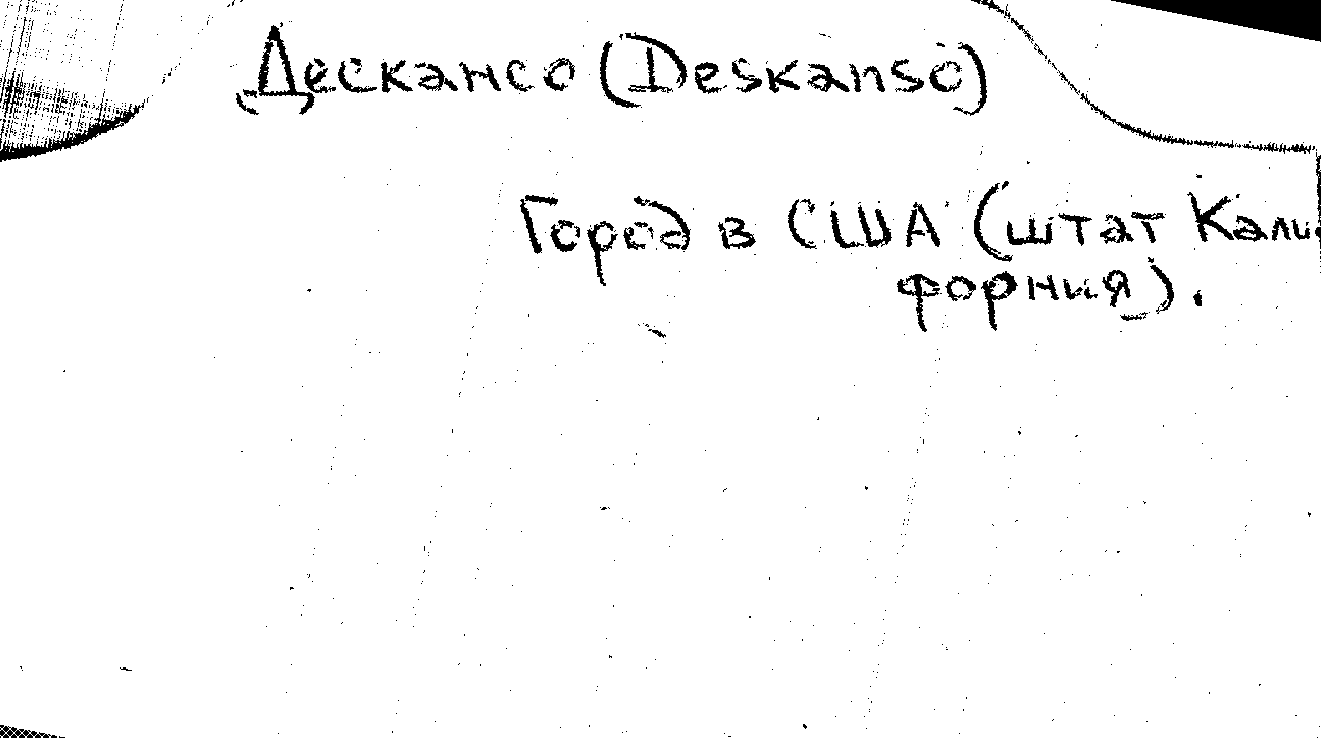 Дескансо (Deskanso)
Город в США (штат Кали-
форния).